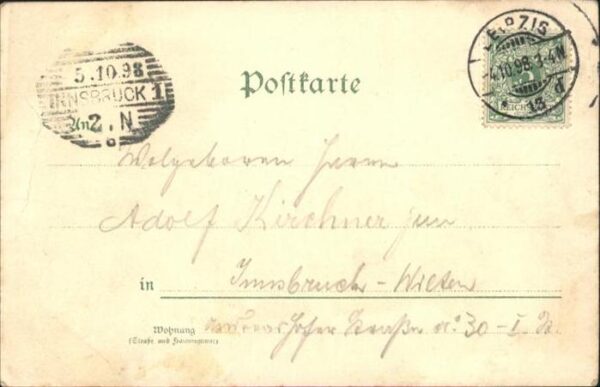 5.10.98
INNSBRUCK 1
2. N
Postkarte
LEIPZIG
4.10.98. 3-4 N
13. d
REICHSPOST
Wolgeboren Herrn
Adolf Kirchner jun
in Innsbruck-Wilten
hofer Straße no 30 - I St.
Wohnung
(Straße und Hausnummer)